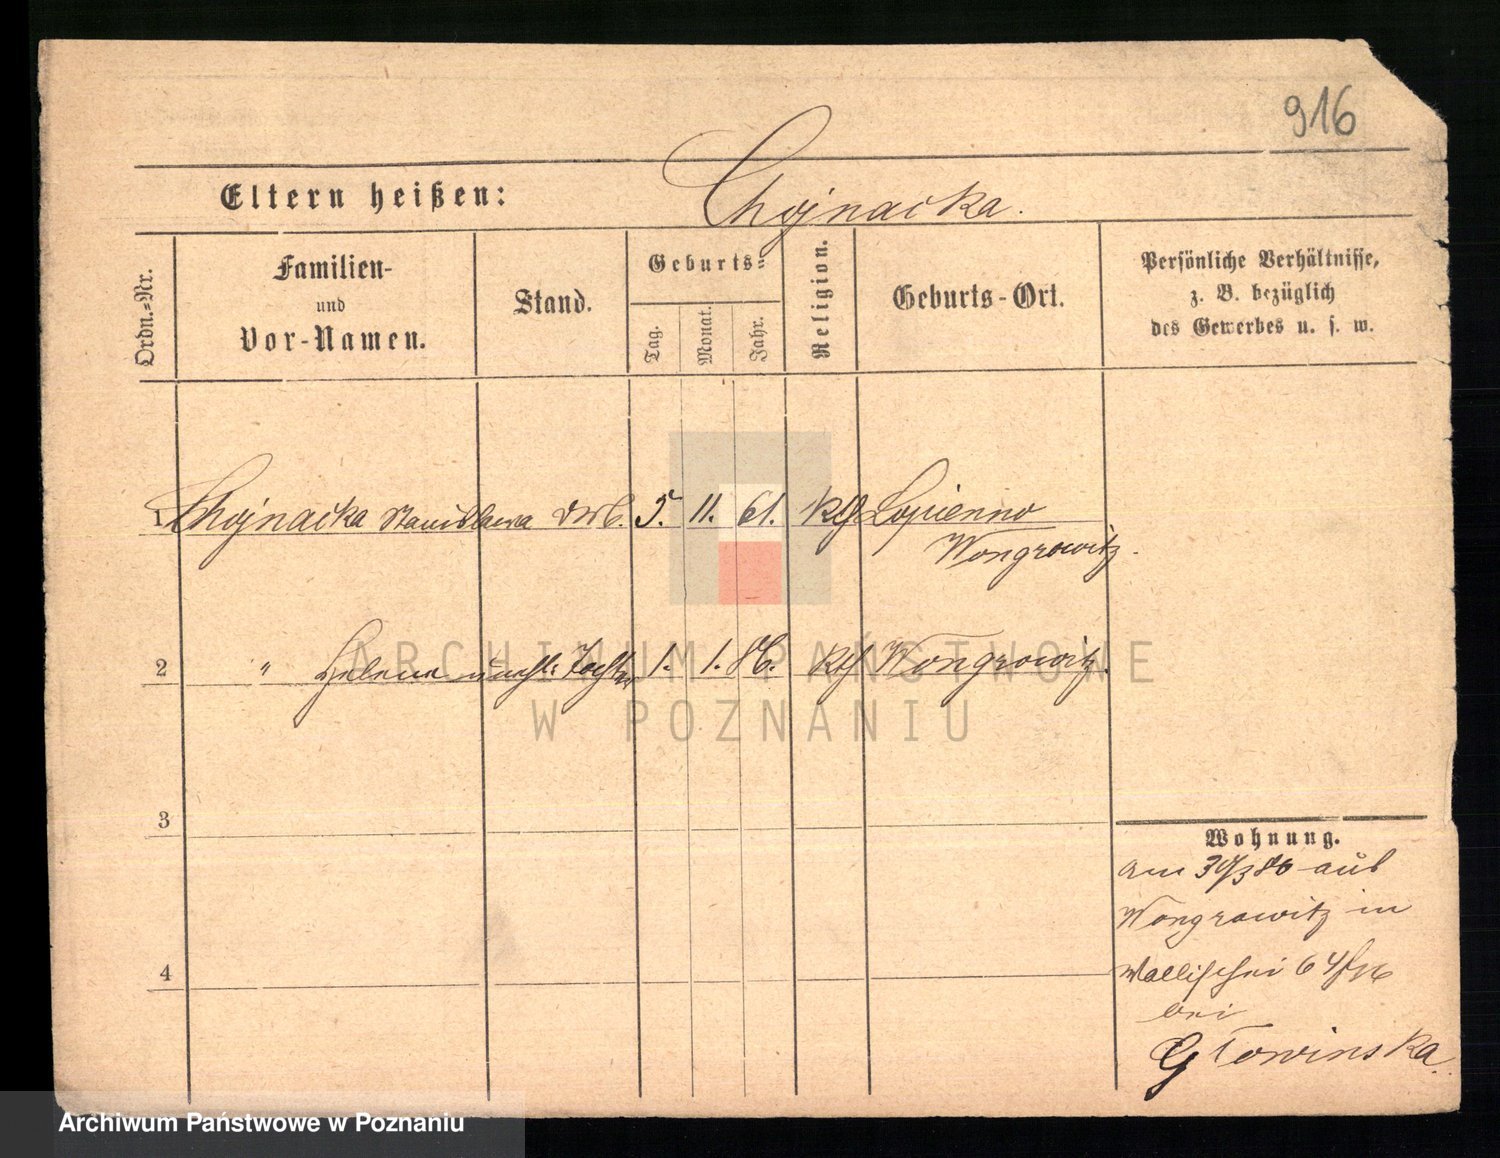 916
Eltern heißen: Chojnacka.
Ordn.=Nr.
Familien-
und
Vor-Namen.
Stand.
Geburts=
Tag.
Monat.
Jahr.
Religion.
Geburts-Ort.
Persönliche Verhältnisse,
z. B. bezüglich
des Gewerbes u. s. w.
1 Chojnacka Stanislawa 5. 11. 61. Kth Lopienno
Wongrowitz.
2 " Helene unehl. Tochter 1. 1. 86. Kth Wongrowitz.
3
4
Wohnung.
am 86 aus
Wongrowitz in
Wallischei
bei
Glowinska.
ARCHIWUM PAŃSTWOWE
W POZNANIU
Archiwum Państwowe w Poznaniu